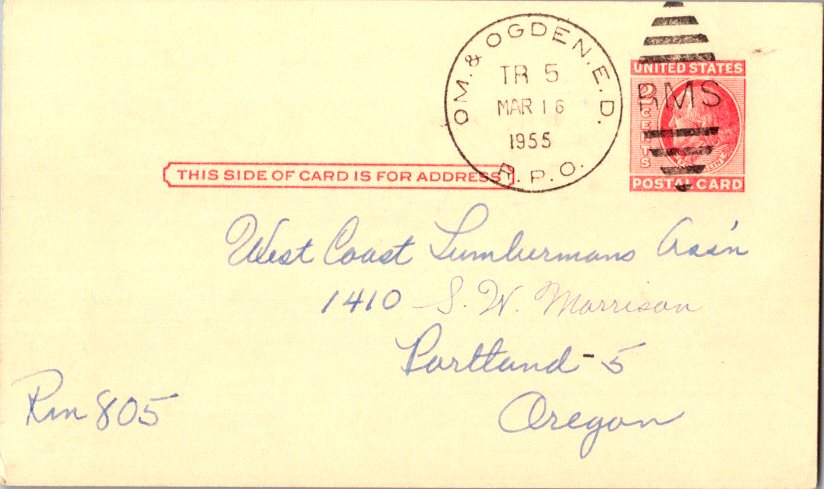 OM. & OGDEN. E. D.
TR 5
MAR 16
1955
R. P. O.
RMS
UNITED STATES
2 CENTS
POSTAL CARD
THIS SIDE OF CARD IS FOR ADDRESS
West Coast Lumbermans Ass'n
1410 S. W. Morrison
Portland - 5
Oregon
Rm 805